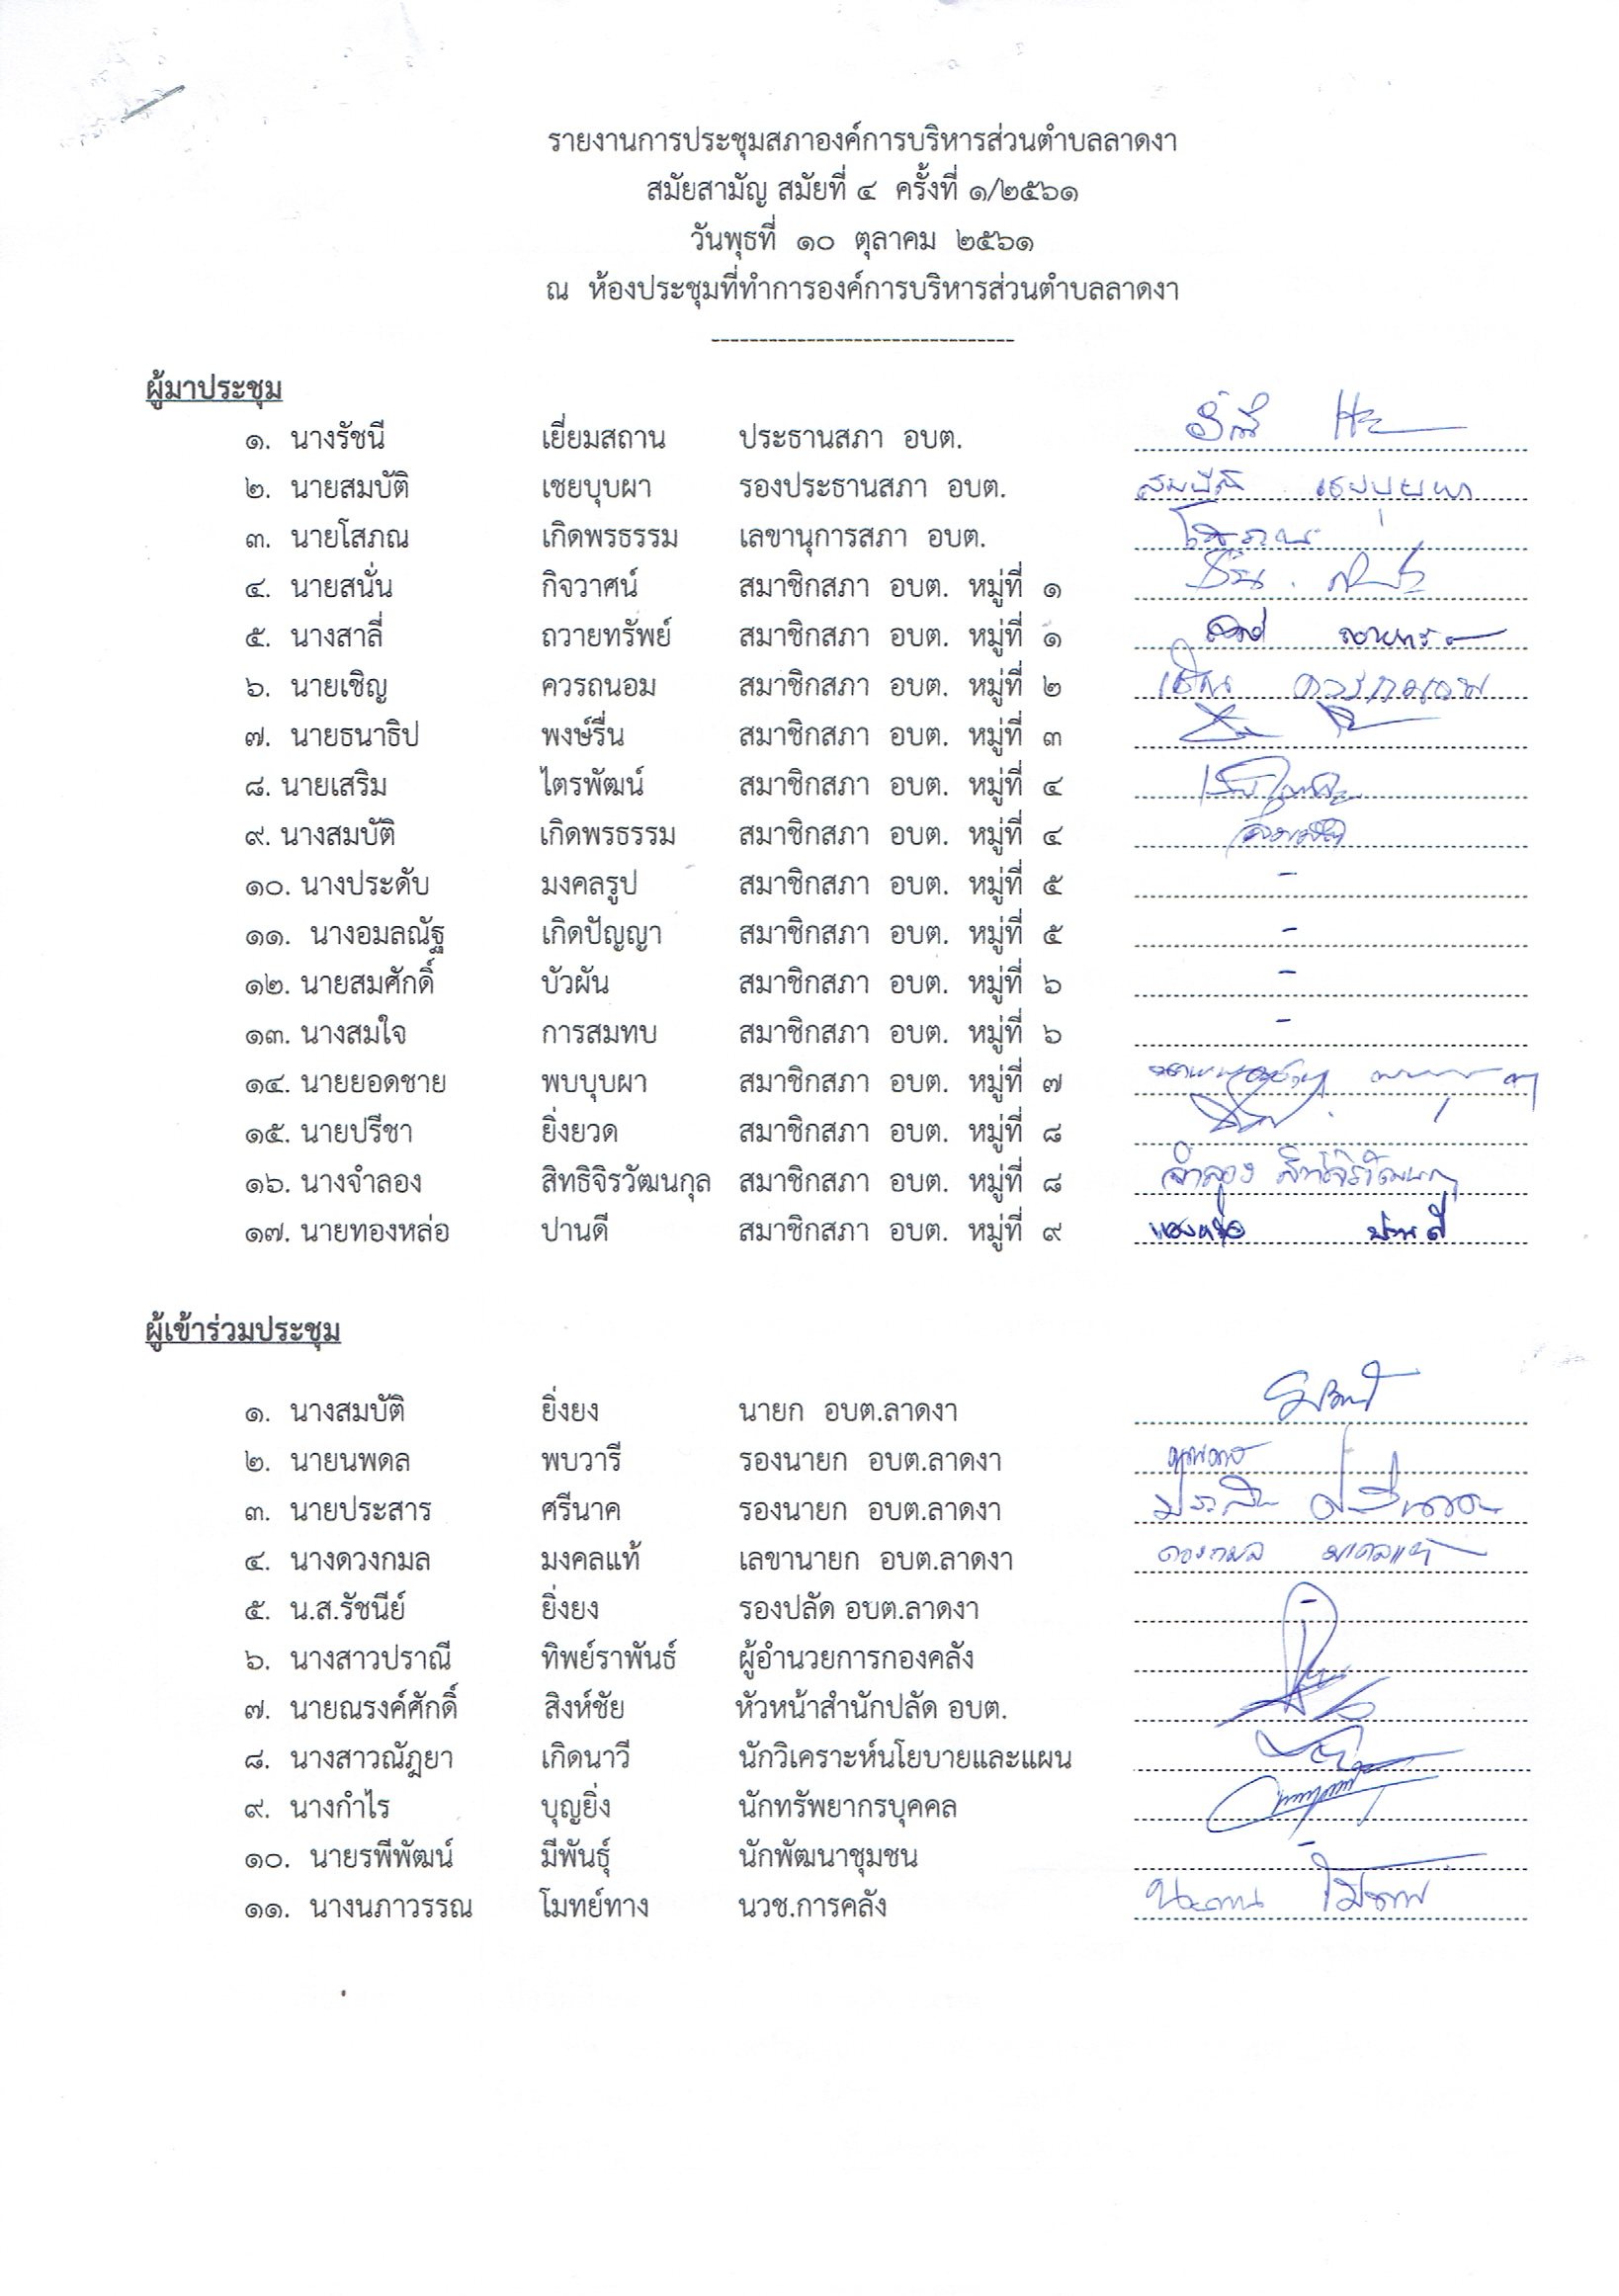 รายงานการประชุมสภาองค์การบริหารส่วนตำบลลาดงา
สมัยสามัญ สมัยที่ ๔ ครั้งที่ ๑/๒๕๖๑
วันพุธที่ ๑๐ ตุลาคม ๒๕๖๑
ณ ห้องประชุมที่ทำการองค์การบริหารส่วนตำบลลาดงา
--------------------------------
ผู้มาประชุม
๑. นางรัชนี เยี่ยมสถาน ประธานสภา อบต.
๒. นายสมบัติ เชยบุบผา รองประธานสภา อบต. สมบัติ เชยบุบผา
๓. นายโสภณ เกิดพรธรรม เลขานุการสภา อบต. โสภณ
๔. นายสนั่น กิจวาศน์ สมาชิกสภา อบต. หมู่ที่ ๑
๕. นางสาลี่ ถวายทรัพย์ สมาชิกสภา อบต. หมู่ที่ ๑
๖. นายเชิญ ควรถนอม สมาชิกสภา อบต. หมู่ที่ ๒ เชิญ ควรถนอม
๗. นายธนาธิป พงษ์รื่น สมาชิกสภา อบต. หมู่ที่ ๓
๘. นายเสริม ไตรพัฒน์ สมาชิกสภา อบต. หมู่ที่ ๔
๙. นางสมบัติ เกิดพรธรรม สมาชิกสภา อบต. หมู่ที่ ๔
๑๐. นางประดับ มงคลรูป สมาชิกสภา อบต. หมู่ที่ ๕ -
๑๑. นางอมลณัฐ เกิดปัญญา สมาชิกสภา อบต. หมู่ที่ ๕ -
๑๒. นายสมศักดิ์ บัวผัน สมาชิกสภา อบต. หมู่ที่ ๖ -
๑๓. นางสมใจ การสมทบ สมาชิกสภา อบต. หมู่ที่ ๖ -
๑๔. นายยอดชาย พบบุบผา สมาชิกสภา อบต. หมู่ที่ ๗
๑๕. นายปรีชา ยิ่งยวด สมาชิกสภา อบต. หมู่ที่ ๘
๑๖. นางจำลอง สิทธิจิรวัฒนกุล สมาชิกสภา อบต. หมู่ที่ ๘ จำลอง สิทธิจิรวัฒนกุล
๑๗. นายทองหล่อ ปานดี สมาชิกสภา อบต. หมู่ที่ ๙ ทองหล่อ ปานดี
ผู้เข้าร่วมประชุม
๑. นางสมบัติ ยิ่งยง นายก อบต.ลาดงา
๒. นายนพดล พบวารี รองนายก อบต.ลาดงา
๓. นายประสาร ศรีนาค รองนายก อบต.ลาดงา ประสาร ศรีนาค
๔. นางดวงกมล มงคลแท้ เลขานายก อบต.ลาดงา ดวงกมล มงคลแท้
๕. น.ส.รัชนีย์ ยิ่งยง รองปลัด อบต.ลาดงา -
๖. นางสาวปราณี ทิพย์ราพันธ์ ผู้อำนวยการกองคลัง
๗. นายณรงค์ศักดิ์ สิงห์ชัย หัวหน้าสำนักปลัด อบต.
๘. นางสาวณัฎยา เกิดนาวี นักวิเคราะห์นโยบายและแผน
๙. นางกำไร บุญยิ่ง นักทรัพยากรบุคคล
๑๐. นายรพีพัฒน์ มีพันธุ์ นักพัฒนาชุมชน -
๑๑. นางนภาวรรณ โมทย์ทาง นวช.การคลัง